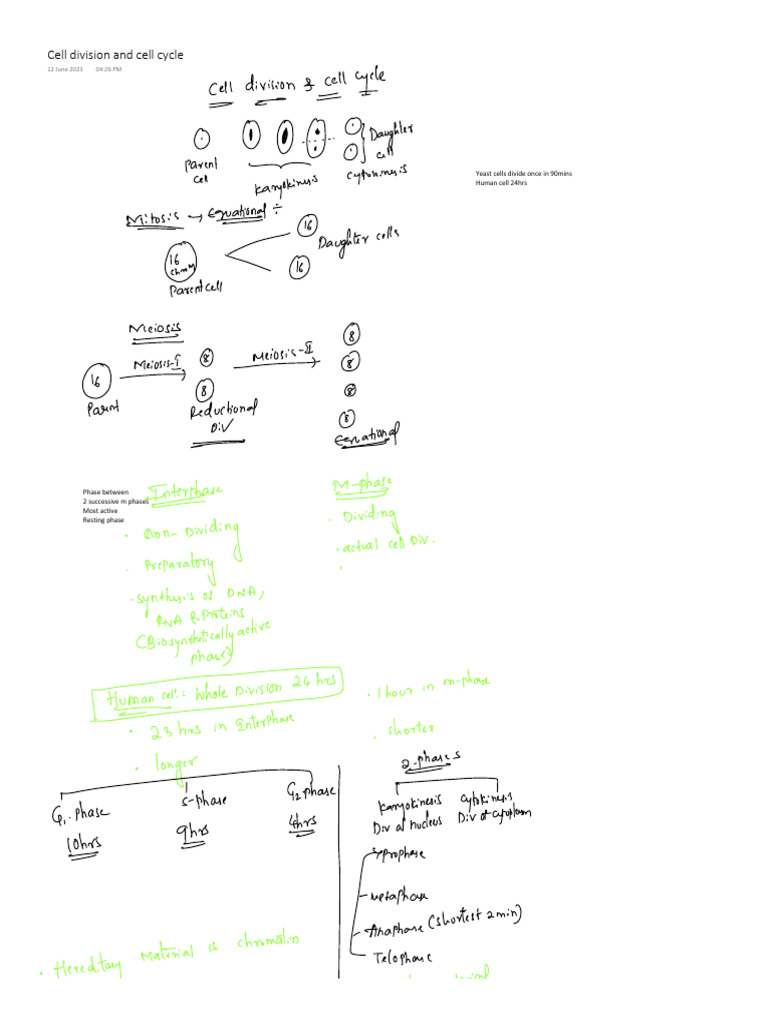 Cell division and cell cycle
12 June 2023 04:26 PM
Cell division & cell cycle
Parent cell
Karyokinesis
Cytokinesis
Daughter cell
Yeast cells divide once in 90mins
Human cell 24hrs
Mitosis → Equational ÷
16
16 chrms
Daughter cells
16
Parent cell
Meiosis
8
8
Meiosis-I
8
Meiosis-II
8
16
8
8
Parent
Reductional
Div
8
Equational
Phase between
2 successive m phases
Most active
Resting phase
Interphase
M-phase
• Non-Dividing
• Dividing
• Preparatory
• actual cell Div.
• synthesis of DNA,
RNA & Proteins
(Biosynthetically active
phase)
Human cell: Whole Division 24 hrs
• 1 hour in m-phase
• 23 hrs in Interphase
• shorter
• longer
2-phases
G1-phase
S-phase
G2 phase
Karyokinesis
Cytokinesis
10hrs
9hrs
4hrs
Div of nucleus
Div of cytoplasm
Prophase
metaphase
Anaphase (shortest 2min)
Telophase
• Hereditary Material is chromatin